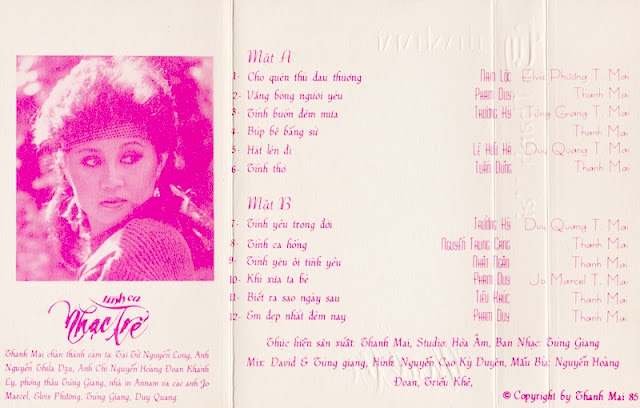 Mặt A
1- Cho quên thú đau thương Nam Lộc Elvis Phương T. Mai
2- Vắng bóng người yêu Phạm Duy Thanh Mai
3- Tình buồn đêm mưa Trường Kỳ Tùng Giang T. Mai
4- Búp bê bằng sứ Thanh Mai
5- Hát lên đi Lê Hựu Hà Duy Quang T. Mai
6- Tình thơ Tuấn Dũng Thanh Mai
Mặt B
7- Tình yêu trong đời Trường Kỳ Duy Quang T. Mai
8- Tình ca hồng Nguyễn Trung Cang Thanh Mai
9- Tình yêu ôi tình yêu Nhật Ngân Thanh Mai
10- Khi xưa ta bé Phạm Duy Jo Marcel T. Mai
11- Biết ra sao ngày sau Tiểu Khúc Thanh Mai
12- Em đẹp nhất đêm nay Phạm Duy Thanh Mai
Thực hiện sản xuất: Thanh Mai, Studio: Hòa Âm, Ban Nhạc: Tùng Giang
Mix: David & Tùng giang, Hình Nguyễn Cao Kỳ Duyên, Mẫu Bìa: Nguyễn Hoàng
Đoan, Triều Khê,
© Copyright by Thanh Mai 85
tình ca
Nhạc Trẻ
Thanh Mai chân thành cám tạ: Tài Tử Nguyễn Long, Anh
Nguyễn Thừa Dzu, Anh Chị Nguyễn Hoàng Đoan Khánh
Ly, phòng thâu Tùng Giang, nhà in Annam và các anh Jo
Marcel, Elvis Phương, Tùng Giang, Duy Quang